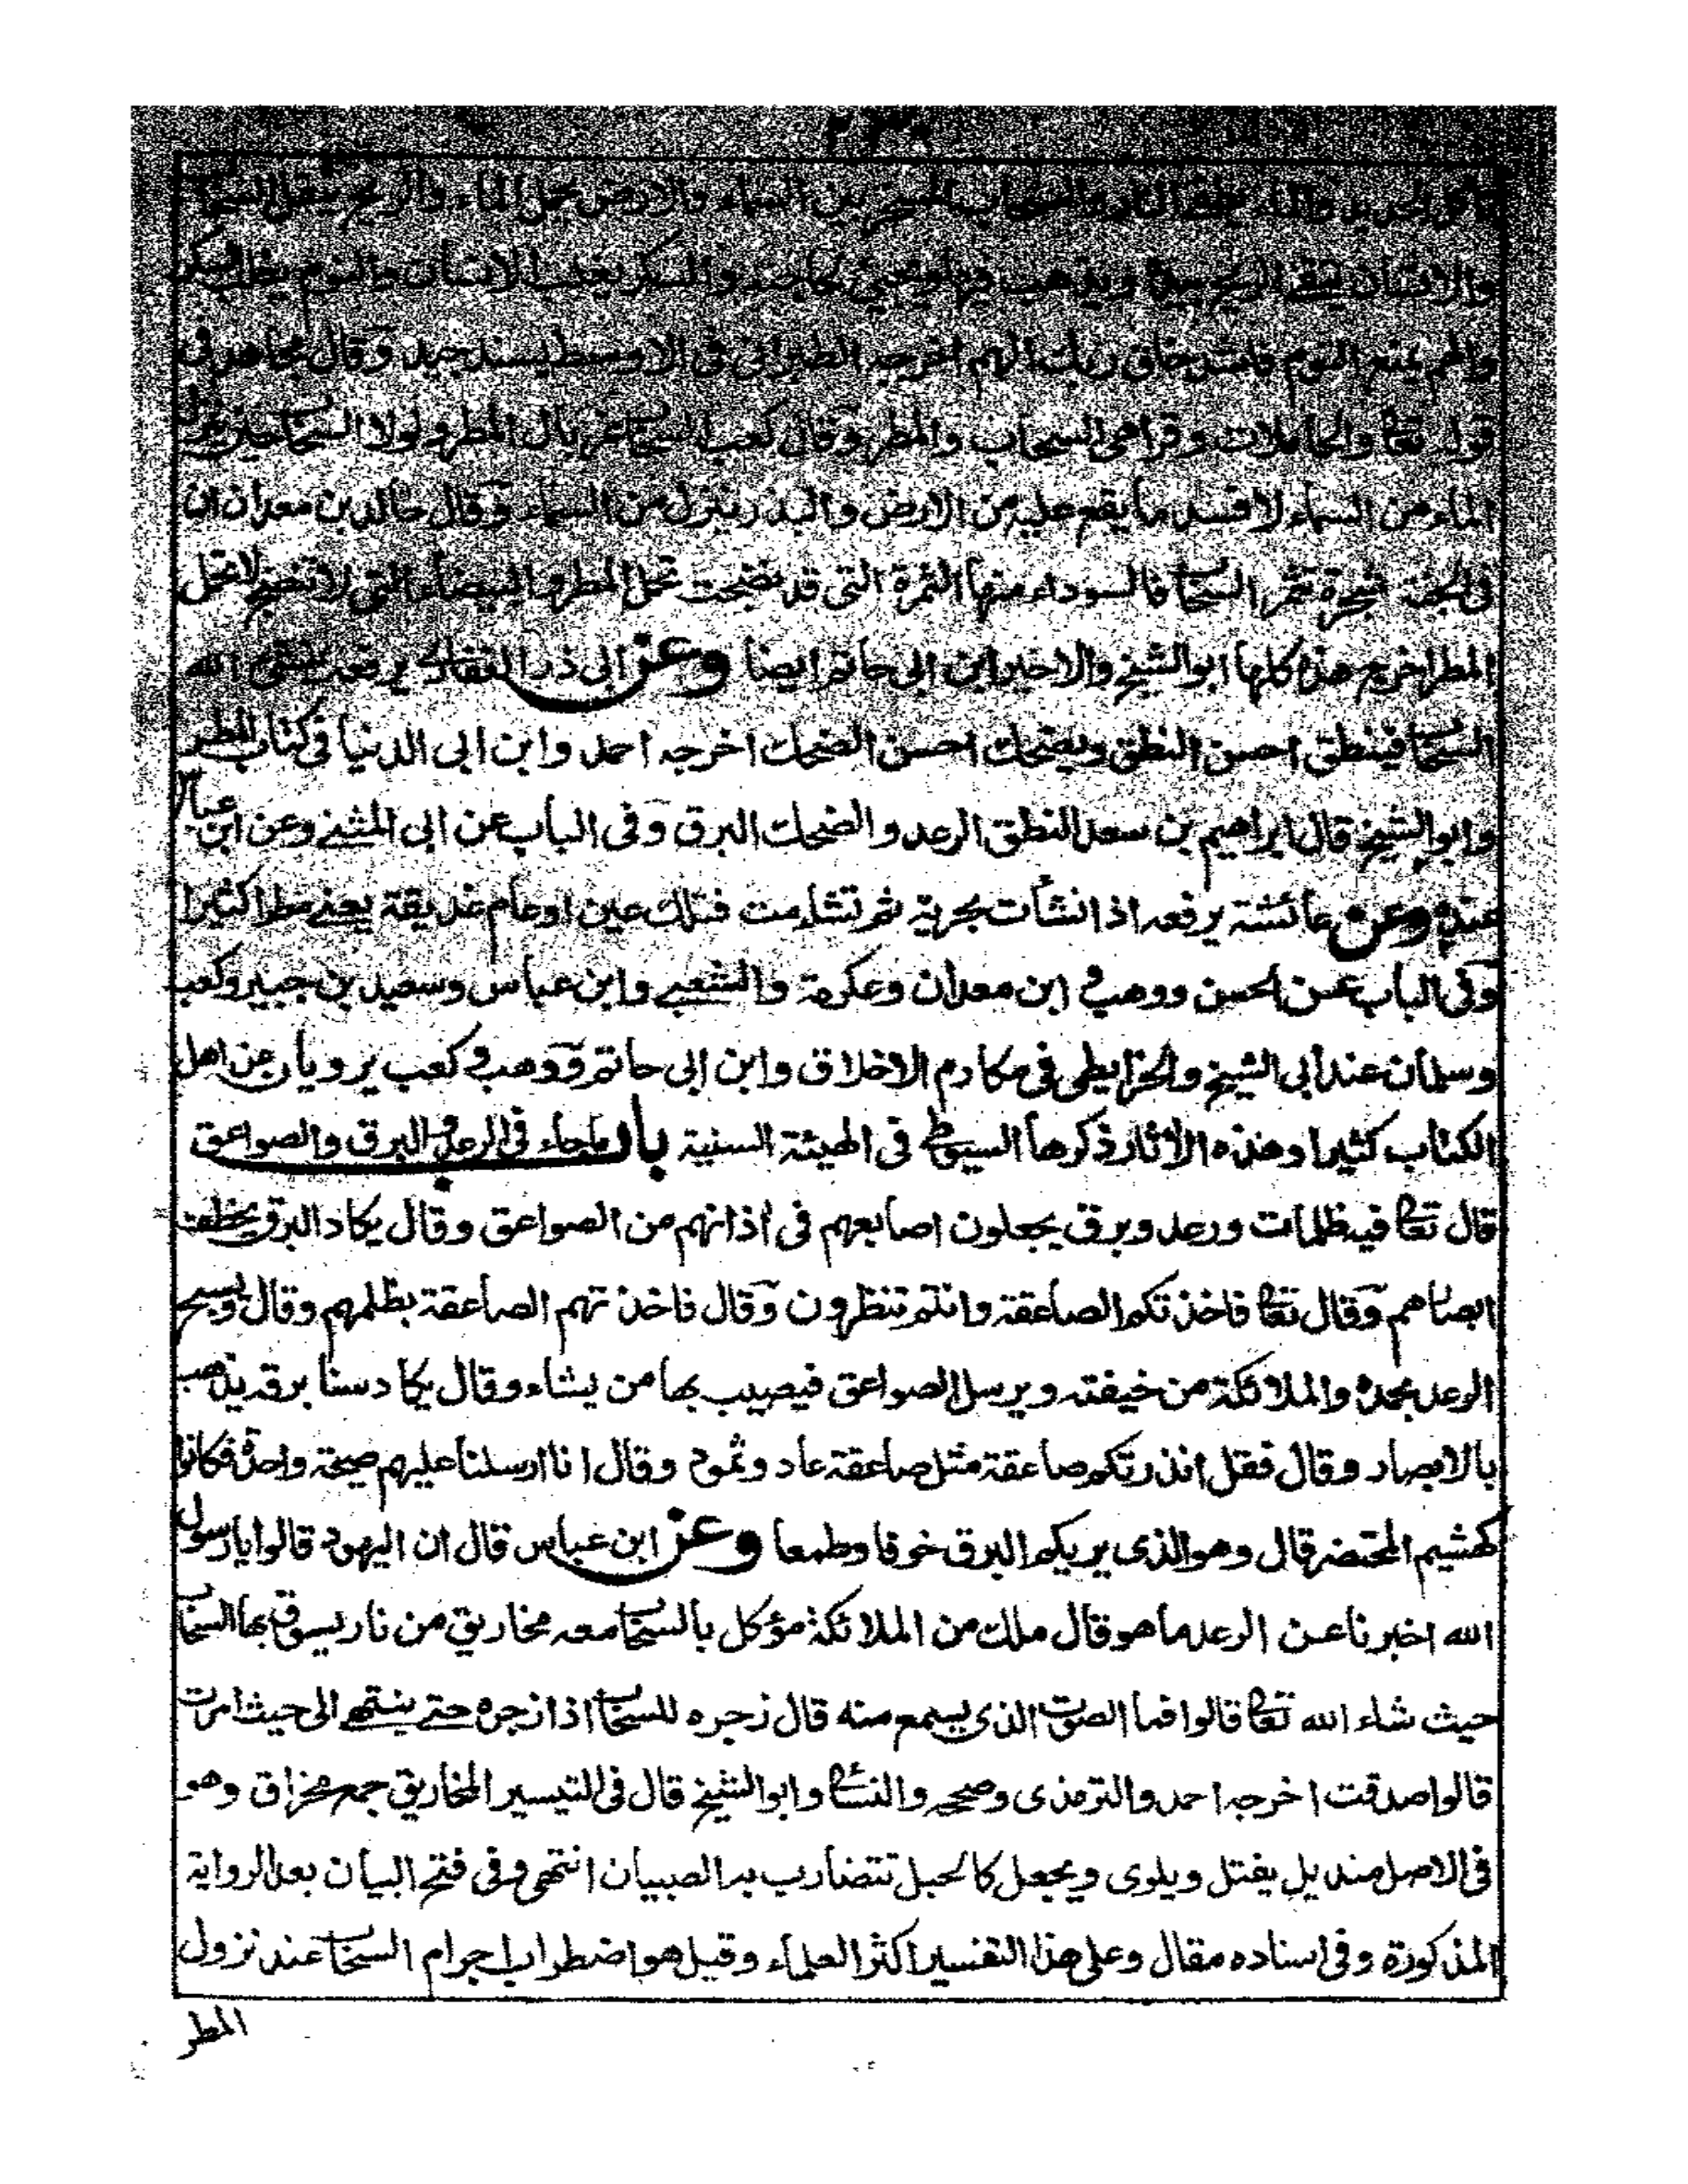 ٢٣٠
الحديد والنار والماء يطفئ النار والسحاب المسخر بين السماء والارض يحمل الماء والريح ينقل السحاب
والانسان يتقى الريح بيده ويذهب فيها لحاجته والسكر يغلب الانسان والنوم يغلب السكر
والهم يمنع النوم فاشد خلق ربك الهم اخرجه الطبرانى فى الاوسط بسند جيد وقال مجاهد فى
قوله تعالى والحاملات وقرا هى السحاب والمطر وقال كعب السحاب غربال المطر ولولا السحاب حين ينزل
الماء من السماء لافسد ما يقع عليه من الارض والبذر ينزل من السماء وقال خالد بن معدان ان
فى الجنة شجرة تثمر السحاب فالسوداء منها الثمرة التى قد نضجت تحمل المطر والبيضاء التى لا تنضج لا تحمل
المطر اخرج هذه كلها ابو الشيخ والاخير ابن ابى حاتم ايضا وعن ابى ذر الغفارى يرفعه ينشئ الله
السحاب فينطق احسن النطق ويضحك احسن الضحك اخرجه احمد وابن ابى الدنيا فى كتاب المطر
وابو الشيخ قال ابراهيم بن سعد النطق الرعد والضحك البرق وفى الباب عن ابى المثنى وعن ابن عباس
عنده وعن عائشة يرفعه اذا نشأت بحرية ثم تشاءمت فتلك عين او عام غديقة يعنى مطرا كثيرا
وفى الباب عن الحسن ووهب و ابن معدان وعكرمة والشعبى وابن عباس وسعيد بن جبير وكعب
وسلمان عند ابى الشيخ والخرايطى فى مكارم الاخلاق وابن ابى حاتم ووهب و كعب يرويان عن اهل
الكتاب كثيرا وهذه الاثار ذكرها السيوطى فى الهيئة السنية باب ماجاء فى الرعد و البرق والصواعق
قال تعالى فيه ظلمات ورعد وبرق يجعلون اصابعهم فى اذانهم من الصواعق وقال يكاد البرق يخطف
ابصارهم وقال تعالى فاخذتكم الصاعقة وانتم تنظرون وقال فاخذتهم الصاعقة بظلمهم وقال ويسبح
الرعد بحمده والملائكة من خيفته ويرسل الصواعق فيصيب بها من يشاء وقال يكاد سنا برقه يذهب
بالابصار وقال فقل انذرتكم صاعقة مثل صاعقة عاد وثمود وقال انا ارسلنا عليهم صيحة واحدة فكانوا
كهشيم المحتضر قال وهو الذى يريكم البرق خوفا وطمعا وعن ابن عباس قال ان اليهود قالوا يا رسول
الله اخبرنا عن الرعد ما هو قال ملك من الملائكة مؤكل بالسحاب معه مخاريق من نار يسوق بها السحاب
حيث شاء الله تعالى قالوا فما الصوت الذى يسمع منه قال زجره للسحاب اذا زجره حتى ينتهى الى حيث امرت
قالوا صدقت اخرجه احمد والترمذى وصححه والنسائى وابو الشيخ قال فى التيسير المخاريق جمع مخراق وهو
فى الاصل منديل يفتل ويلوى ويجعل كالحبل تتضارب به الصبيان انتهى وفى فتح البيان بعد الرواية
المذكورة وفى اسناده مقال وعلى هذا التفسير اكثر العلماء وقيل هو اضطراب اجرام السحاب عند نزول
المطر